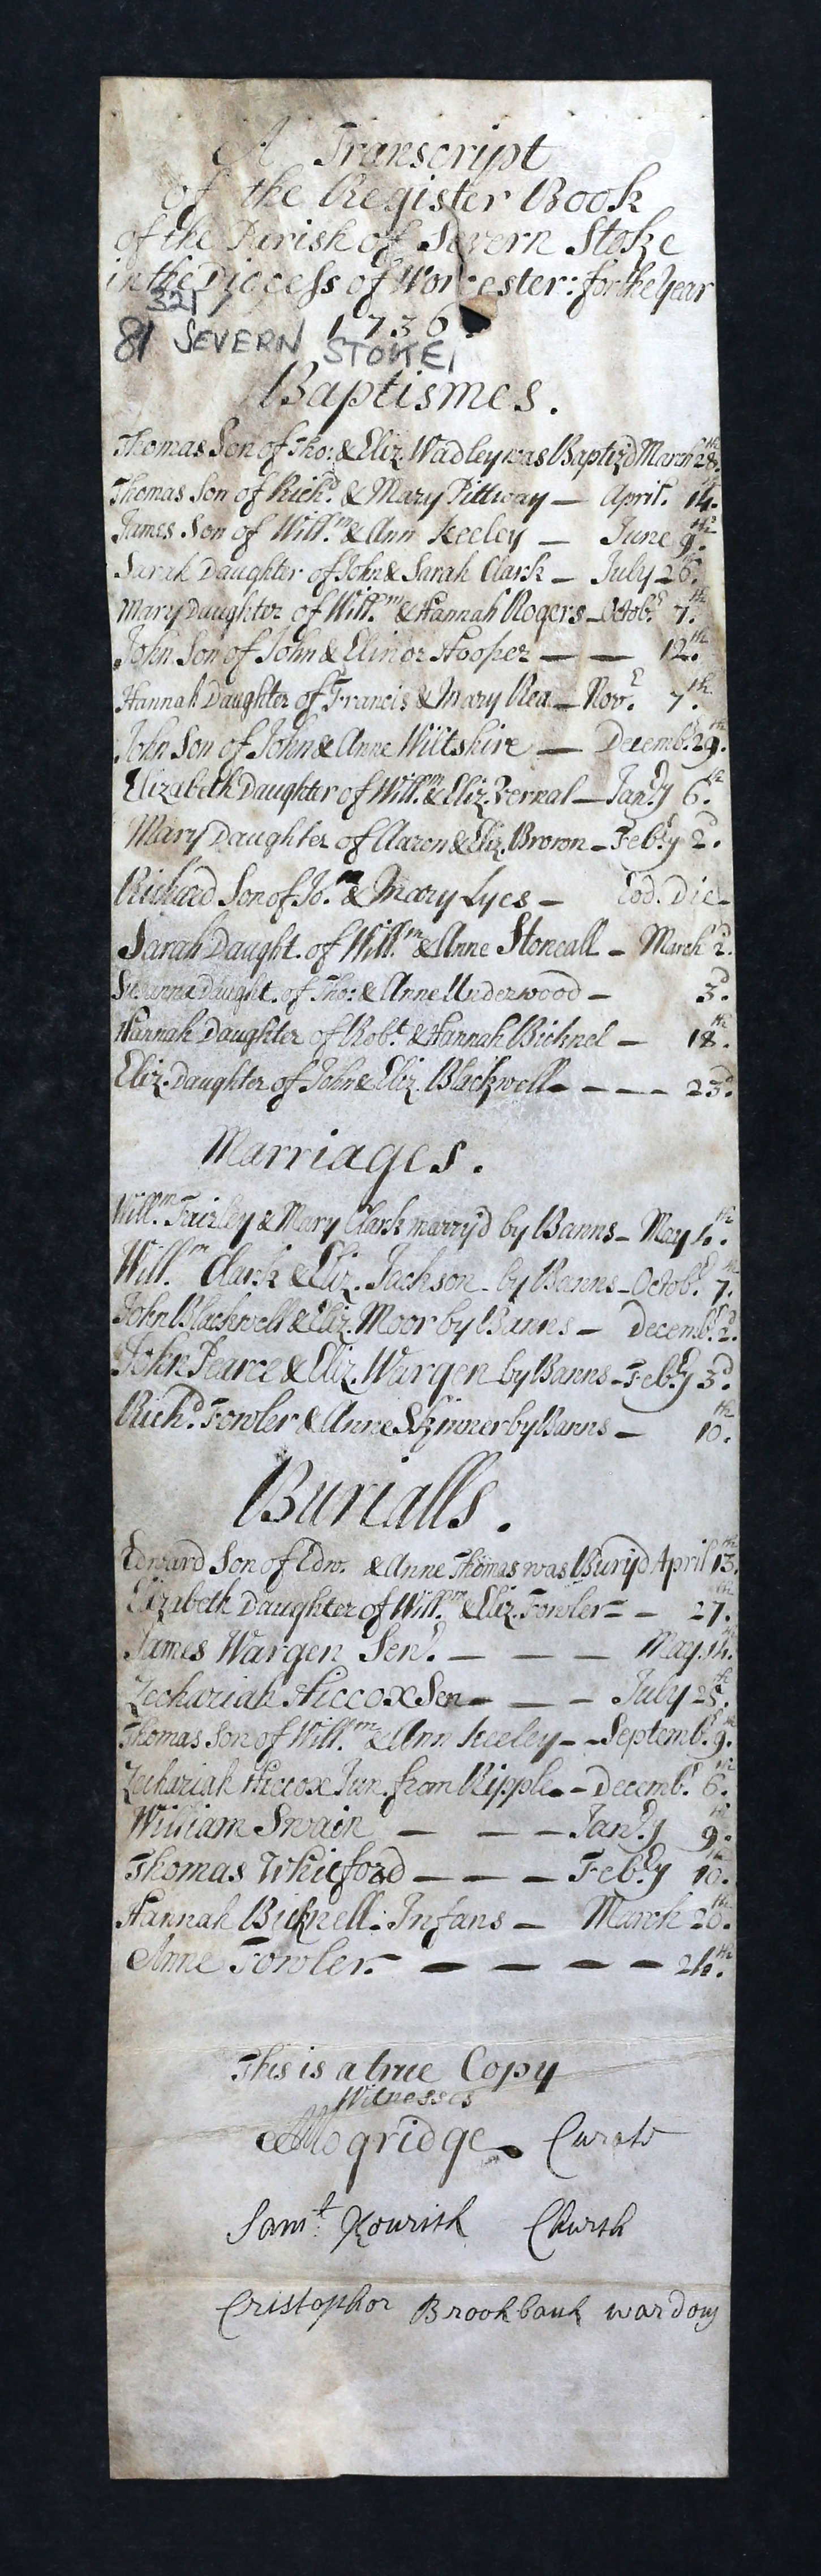 A Transcript
of the Register Book
of the Parish of Severn Stoke
in the Diocess of Worcester: for the Year
321
1736
81 SEVERN STOKE
Baptismes.
Thomas Son of Tho: & Eliz. Wadley was Baptiz'd March 28th.
Thomas Son of Richd. & Mary Pittway — April. 14.
James Son of Willm. & Ann Keeley — June 9th.
Sarah Daughter of John & Sarah Clark — July 26th.
Mary Daughter of Willm. & Hannah Rogers — Octobr. 7th.
John Son of John & Elinor Hooper — — 12th.
Hannah Daughter of Francis & Mary Rea — Novr. 7th.
John Son of John & Anne Wiltshire — Decembr. 29th.
Elizabeth Daughter of Willm. & Eliz. Vernal — Janry 6th.
Mary Daughter of Aaron & Eliz. Brown — Febry 2d.
Richard Son of Jo. & Mary Lyes — Eod. Die
Sarah Daught. of Willm. & Anne Stoneall — March 2d.
Susanna Daught. of Tho: & Anne Underwood — 3d.
Hannah Daughter of Robt. & Hannah Bicknel — 18th.
Eliz. Daughter of John & Eliz. Blackwell — — — — 23d.
Marriages.
Willm. Fairley & Mary Clark marry'd by Banns — May th.
Willm. Clark & Eliz. Jackson by Banns — Octobr. 7th.
John Blackwell & Eliz. Moor by Banns — Decembr. 2d.
John Pearce & Eliz. Wargen by Banns — Febry 3d.
Richd. Fowler & Anne Skinner by Banns — 10th.
Burialls.
Edward Son of Edw. & Anne Thomas was Bury'd April 13th.
Elizabeth Daughter of Willm. & Eliz. Fowler — — 27th.
James Wargen Senr. — — — May 14.
Zechariah Hiccox Sen — — — July 28th.
Thomas Son of Willm. & Ann Keeley — — Septembr. 9th.
Zechariah Hiccox Jun. from Ripple — Decembr. 6th.
William Swain — — — Janry 9th.
Thomas Whitford — — — Febry 10th.
Hannah Bicknell: Infans — March 20th.
Anne Fowler. — — — — — 24th.
This is a true Copy
Witnesses
Mogridge Curate
Saml. Church
Cristophor Brookbank wardens